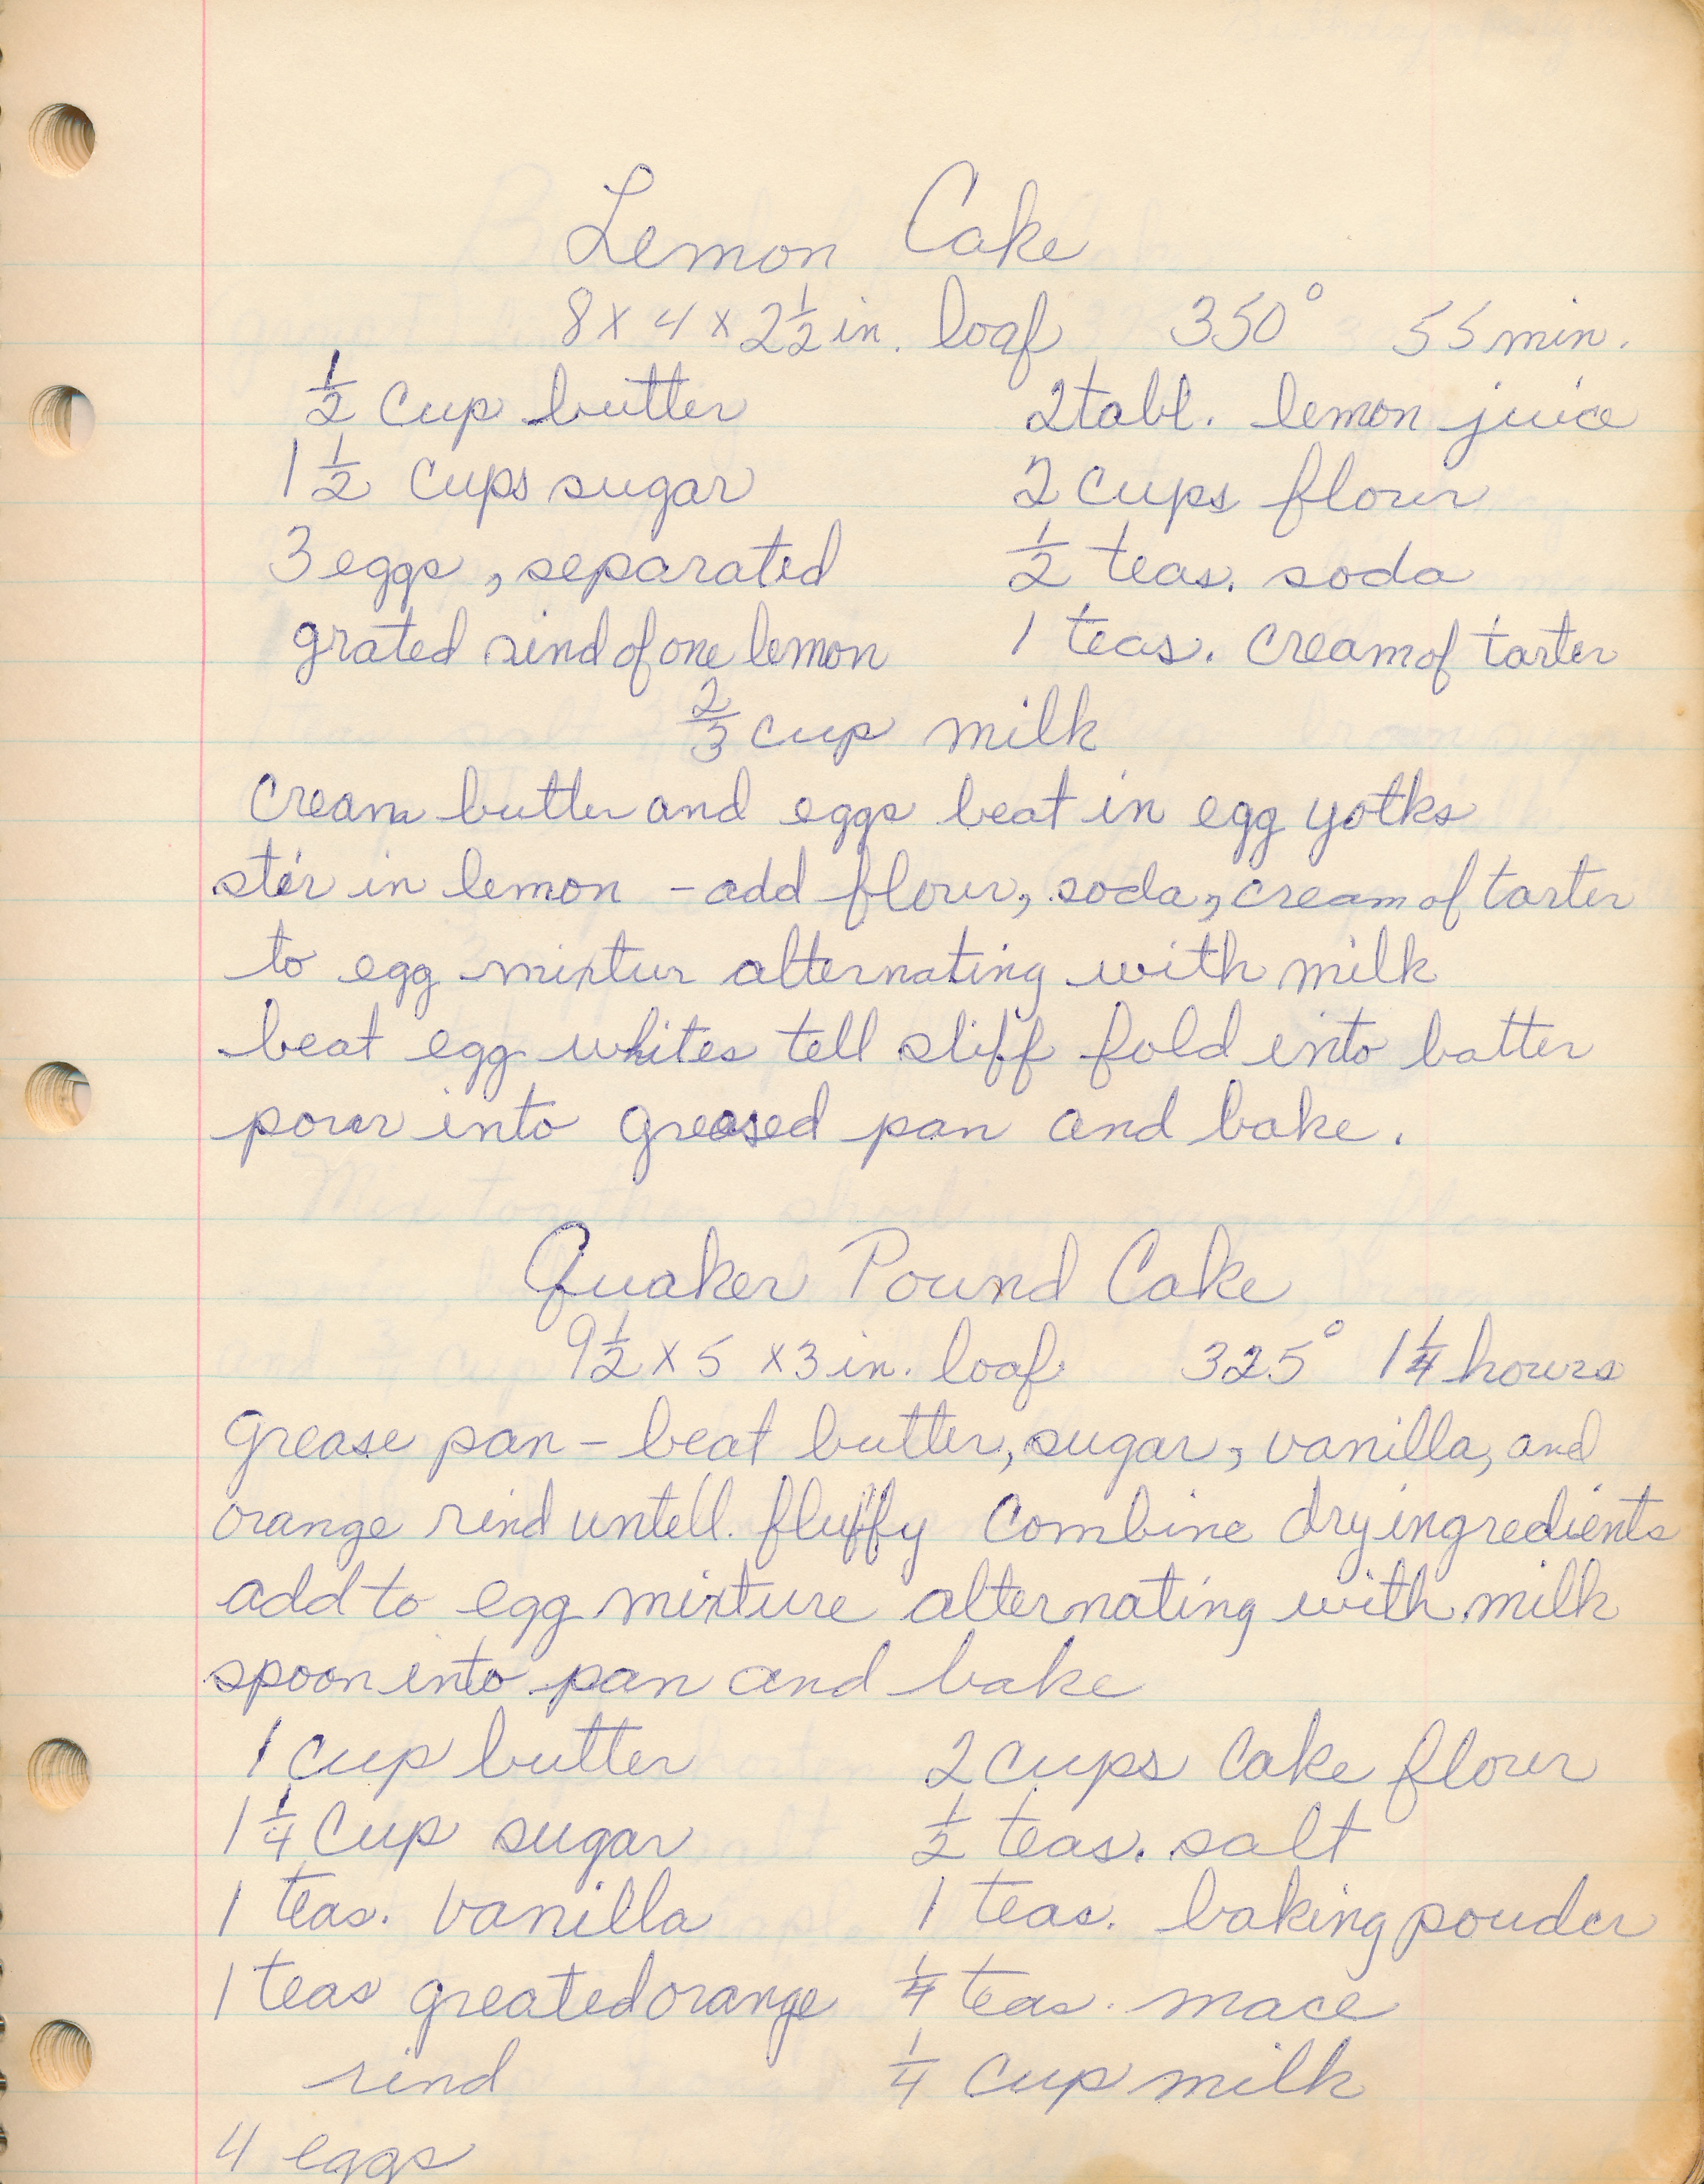 Lemon Cake
8 x 4 x 2 1/2 in. loaf 350° 55 min.
1/2 cup butter 2 tabl. lemon juice
1 1/2 cups sugar 2 cups flour
3 eggs, separated 1/2 teas. soda
grated rind of one lemon 1 teas. cream of tarter
2/3 cup milk
Cream butter and eggs beat in egg yotks
stir in lemon - add flour, soda, cream of tarter
to egg mixtur alternating with milk
beat egg whites tell stiff fold into batter
pour into greased pan and bake.
Quaker Pound Cake
9 1/2 x 5 x 3 in. loaf 325° 1 1/4 hours
Grease pan - beat butter, sugar, vanilla, and
orange rind untell fluffy Combine dry ingredients
add to egg mixture alternating with milk
spoon into pan and bake
1 cup butter 2 cups cake flour
1 1/4 cup sugar 1/2 teas. salt
1 teas. vanilla 1 teas. baking pouder
1 teas greated orange 1/4 teas. mace
rind 1/4 cup milk
4 eggs